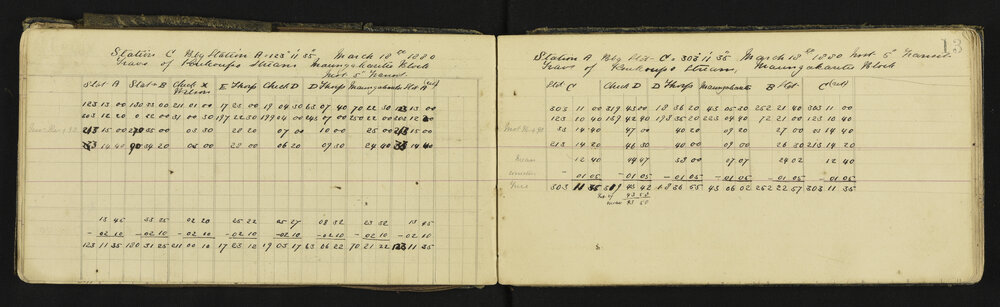 Station C Brg Station A = 123° 11' 35" March 18th 1880
Trav. of Stream Maungakaretu Block
Inst 5" Transit
Stat A Stat B Check X E Thorp Check D D Thorp Maungakaretu Stat A (rd)
123 13 00 21 01 00 17 25 00 19 04 30 63 07 40 70 22 30 123 13 00
303 12 20 0 22 00 31 00 30 197 22 30 199 04 00 243 07 00 250 22 00 303 12 20
213 15 00 270 35 00 03 30 28 20 07 00 10 00 25 00 213 15 00
33 14 40 90 34 20 05 00 28 00 06 20 09 30 24 40 33 14 40
13 45 33 35 02 20 25 22 05 27 08 32 23 32 13 45
-02 10 -02 10 -02 10 -02 10 -02 10 -02 10 -02 10 -02 10
123 11 35 180 31 25 211 00 10 17 23 12 19 03 17 63 06 22 70 21 22 123 11 35
13
Station A Brg Stn C = 303° 11' 35" March 18th 1880 Inst 5" Transit
Trav. of Stream, Maungakaretu Block
Stat C Check D D Thorp Maungakaretu B Stat C (rd)
303 11 00 319 43 00 18 36 20 43 05 30 252 21 40 303 11 00
123 10 40 139 42 40 198 35 20 223 04 40 72 21 00 123 10 40
33 14 40 47 00 40 20 09 20 27 00 33 14 40
213 14 20 46 30 40 00 09 00 26 30 213 14 20
Mean 12 40 44 47 38 00 07 07 24 02 12 40
-01 05 -01 05 -01 05 -01 05 -01 05 -01 05
True 303 11 35 319 43 42 18 36 55 43 06 02 252 22 57 303 11 35
43 58
Mean 43 50